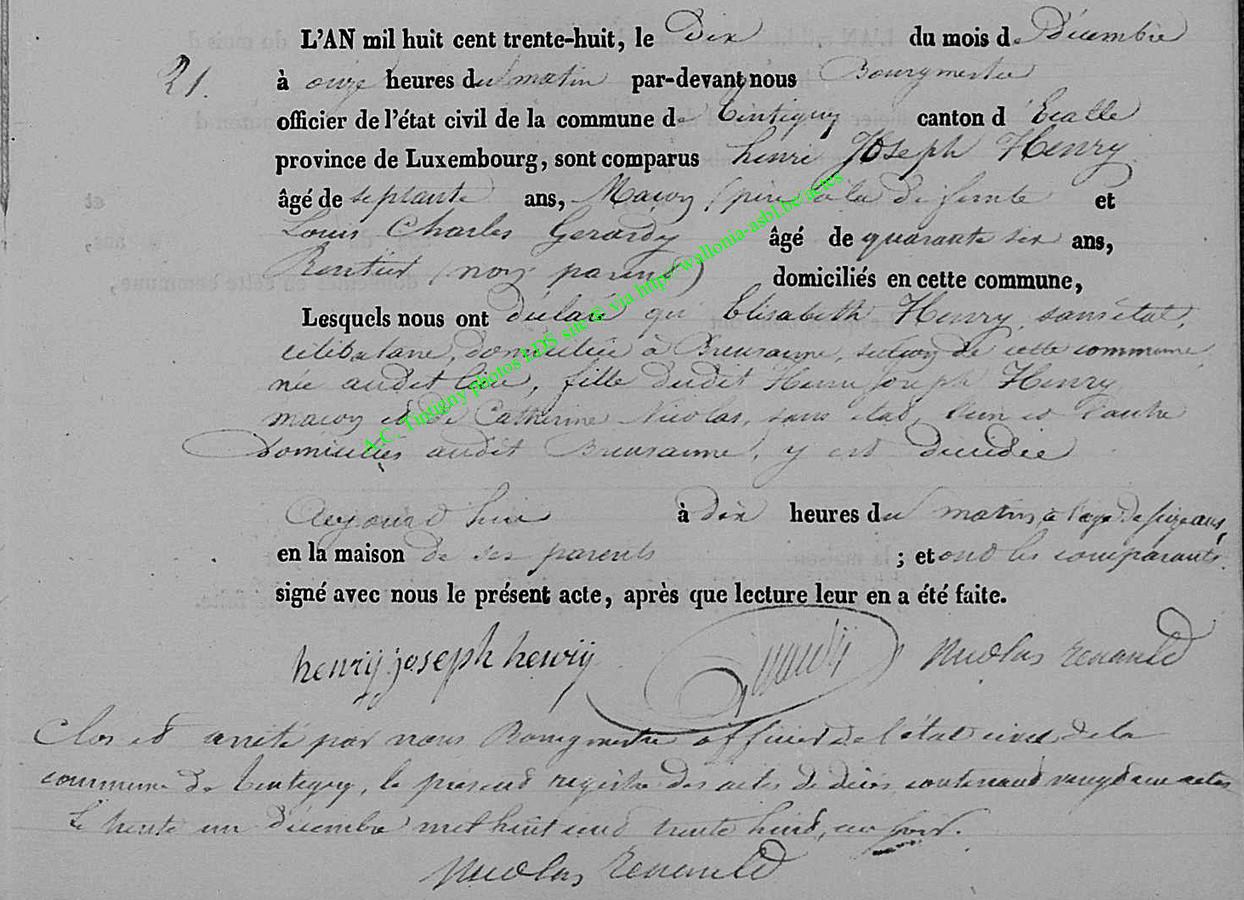 L'AN mil huit cent trente-huit, le Dix du mois de Décembre
21. à onze heures du matin par-devant nous Bourgmestre
officier de l'état civil de la commune de Tintigny canton d'Etalle
province de Luxembourg, sont comparus henri Joseph Henry
âgé de septante ans, Maçon (père à la défunte et
Louis Charles Gerardy âgé de quarante six ans,
Rentier (non parent) domiciliés en cette commune,
Lesquels nous ont déclaré que Elisabeth Henry, sans état,
célibataire, domiciliée à Breuvanne, section de cette commune
née audit lieu, fille dudit Henri Joseph Henry
maçon et de Catherine Nicolas, sans état, l'un et l'autre
Domiciliés audit Breuvanne, y est décédée
Aujourd'hui à dix heures du matin, à l'age de ans,
en la maison de ses parents ; et ont les comparants
signé avec nous le présent acte, après que lecture leur en a été faite.
henry joseph henrÿ Nicolas Renauld
Clos et arrêté par nous Bourgmestre officier de l'état civil de la
commune de Tintigny, le présent registre des actes de décès contenant vingt un actes
Le trente un Décembre mil huit cent trente huit, au soir.
Nicolas Renauld
A.C. Tintigny photos LDS site & via http://wallonia-asbl.be/actes